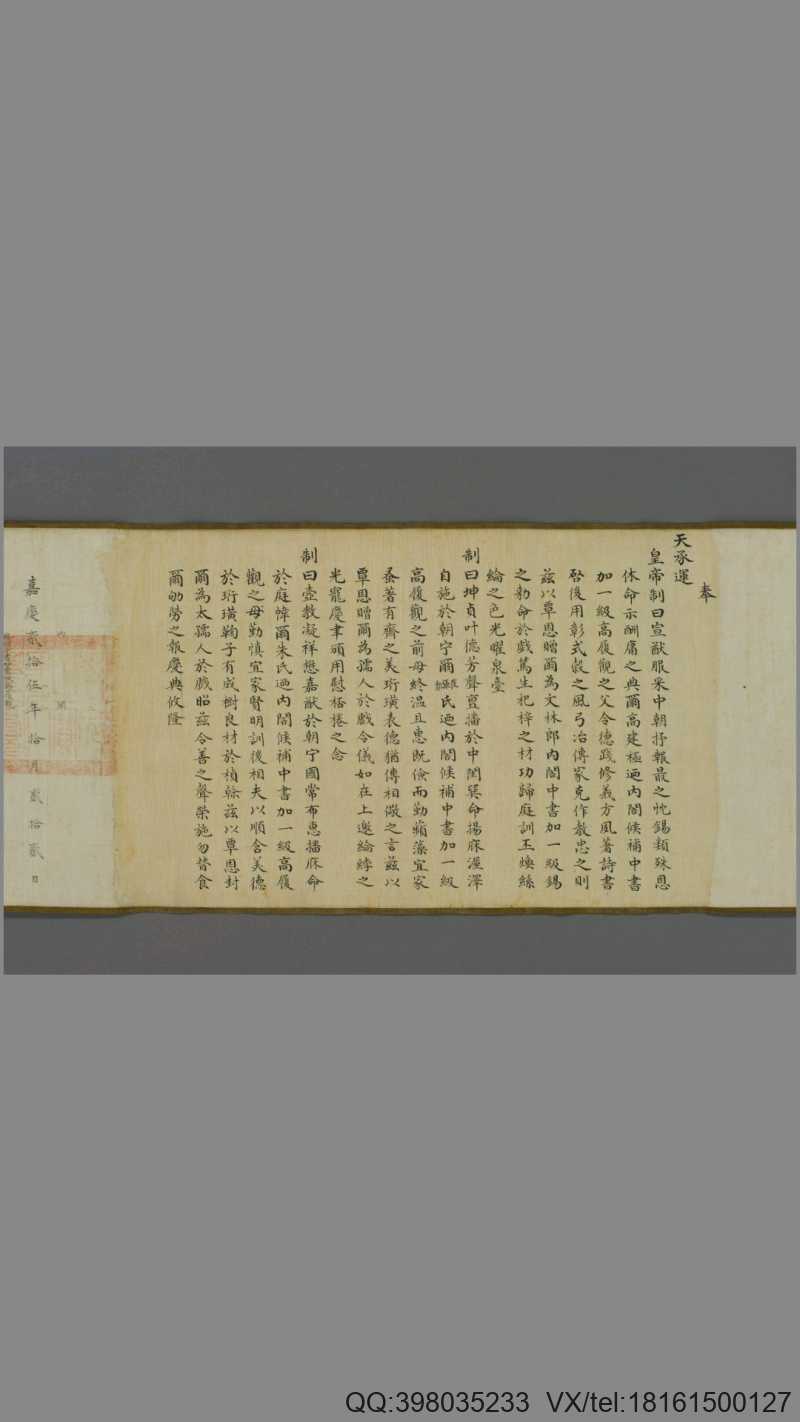 奉
天承運
皇帝制曰宣猷服采中朝抒報最之忱錫類殊恩
休命示酬庸之典爾高建極迺內閣候補中書
加一級高履觀之父令德踐修義方夙著詩書
啓後用彰式穀之風弓冶傳家克作教忠之則
茲以覃恩贈爾為文林郎內閣中書加一級錫
之勅命於戲篤生杞梓之材功歸庭訓丕煥絲
綸之色光曜泉臺
制曰坤貞叶德芳聲夏播於中閨巽命揚庥渥澤
自施於朝宁爾氏迺內閣候補中書加一級
高履觀之前母終溫且惠既儉而勤蘋藻宜家
蚤著有齋之美珩璜表德猶傳相儆之言茲以
覃恩贈爾為孺人於戲令儀如在上邀綸綍之
光寵慶聿頒用慰桮棬之念
制曰壼教凝祥懋嘉猷於朝宁國常布惠播庥命
於庭幃爾朱氏迺內閣候補中書加一級高履
觀之母勤慎宜家賢明訓後相夫以順含美德
於珩璜鞠子有成樹良材於楨榦茲以覃恩封
爾為太孺人於戲昭茲令善之聲榮施勿替食
爾劬勞之報慶典攸隆
嘉慶貳拾伍年拾月貳拾貳日
QQ:398035233 VX/tel:18161500127